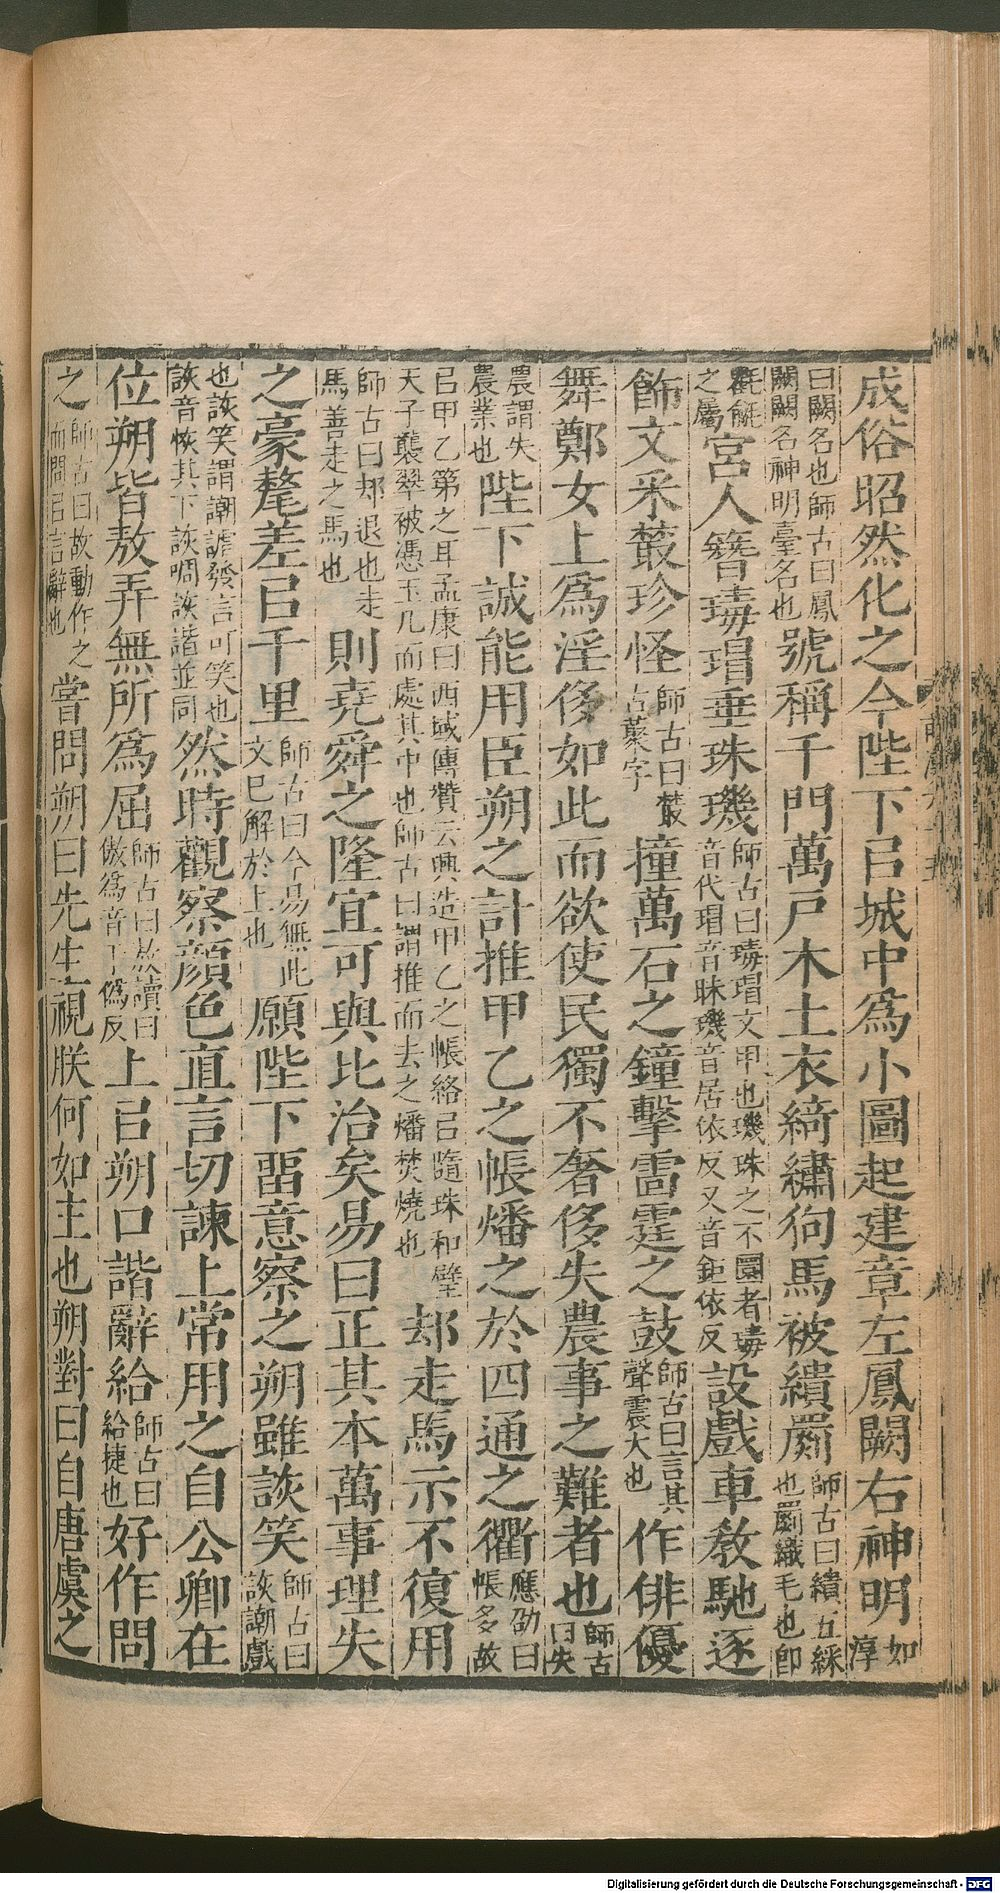 成俗昭然化之今陛下㠯城中爲小圖起建章左鳳闕右神明如淳
曰闕名也師古曰鳳闕闕名神明臺名也號稱千門萬戶木土衣綺繡狗馬被繢罽師古曰繢五綵也罽織毛也即
氍毹之屬宮人簪瑇瑁垂珠璣師古曰瑇瑁文甲也璣珠之不圜者瑇音代瑁音昧璣音居依反又音鉅依反設戲車敎馳逐
飾文采藂珍怪師古曰藂古叢字撞萬石之鐘擊雷霆之鼓師古曰言其聲震大也作俳優
舞鄭女上爲淫侈如此而欲使民獨不奢侈失農事之難者也師古曰失
農謂失農業也陛下誠能用臣朔之計推甲乙之帳燔之於四通之衢應劭曰帳多故
㠯甲乙第之耳孟康曰西域傳贊云興造甲乙之帳絡㠯隨珠和璧天子襲翠被憑玉几而處其中也師古曰謂推而去之燔焚燒也却走馬示不復用
師古曰却退也走馬善走之馬也則堯舜之隆宜可與比治矣易曰正其本萬事理失
之豪氂差㠯千里師古曰今易無此文已解於上也願陛下畱意察之朔雖詼笑師古曰詼謿戲
也詼笑謂謿謔發言可笑也詼音恢其下詼啁詼諧並同然時觀察顔色直言切諫上常用之自公卿在
位朔皆敖弄無所爲屈師古曰敖讀曰傲爲音于僞反上㠯朔口諧辭給師古曰給捷也好作問
之師古曰故動作之而問㠯言辭也嘗問朔曰先生視朕何如主也朔對曰自唐虞之
Digitalisierung gefördert durch die Deutsche Forschungsgemeinschaft - DFG